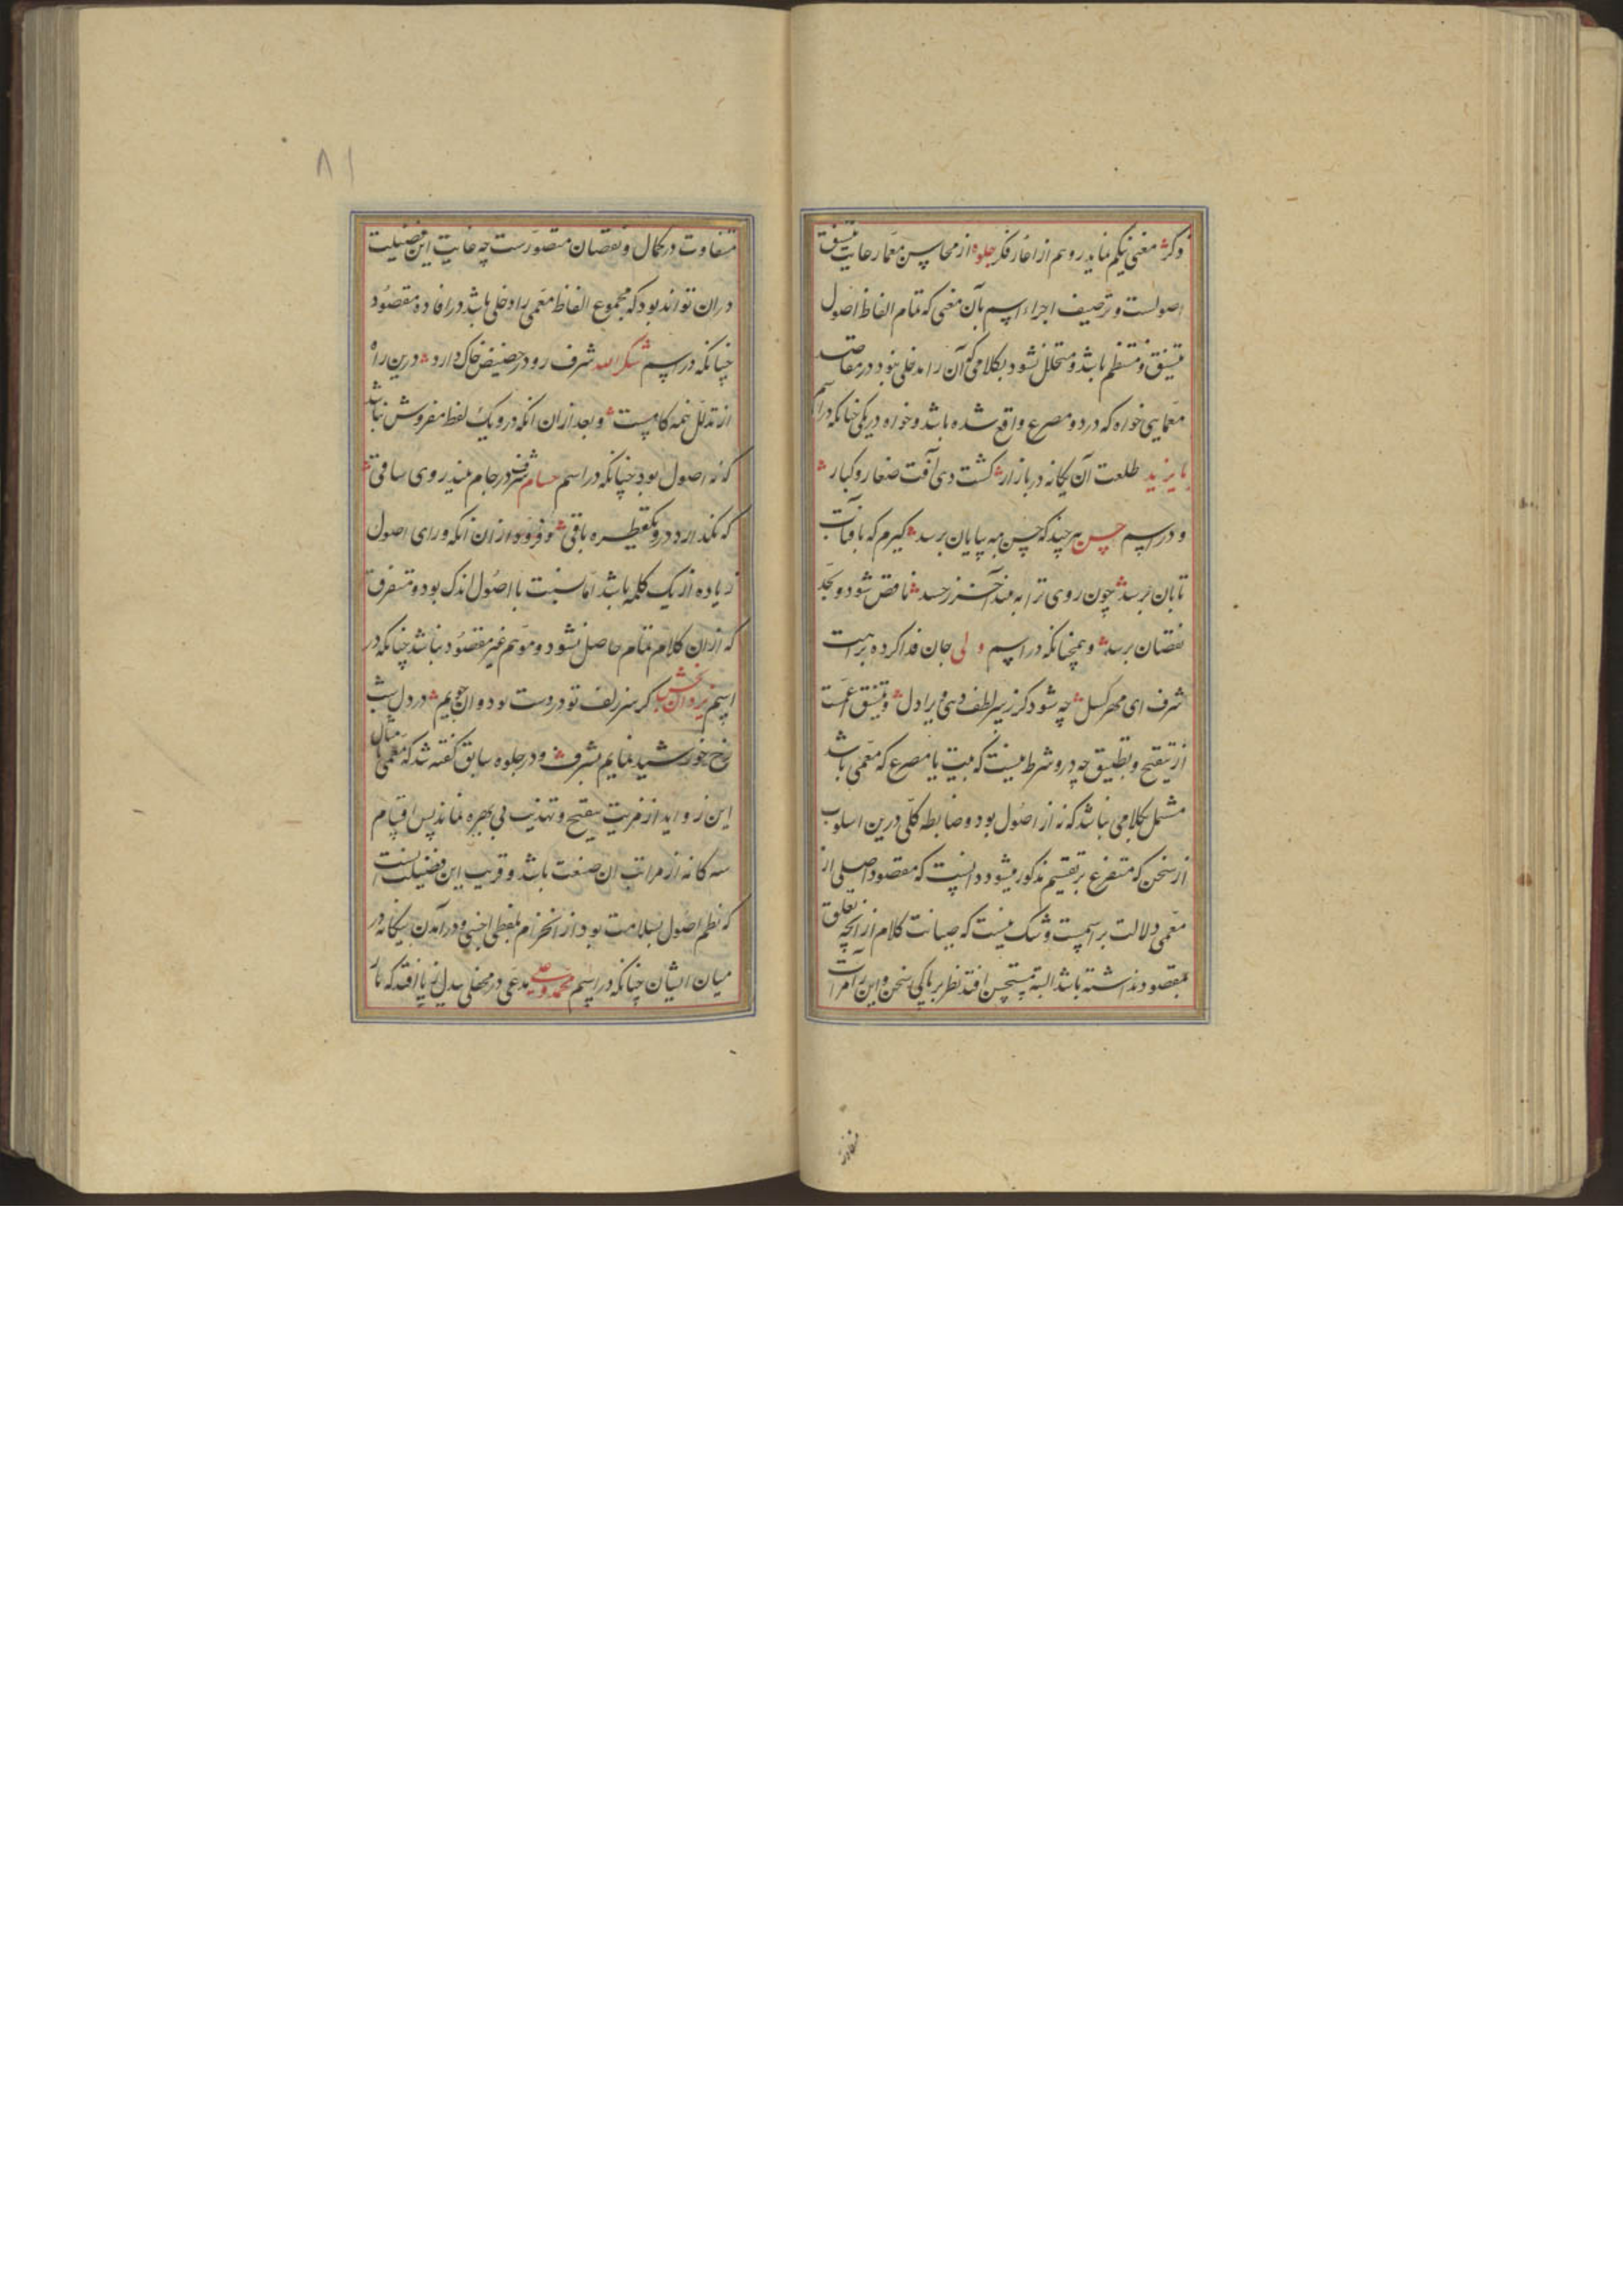 ذکرش معنی نیکم نماید روهم از اغار فکر جلوه از محاسن معما رعایت تنسیق
اصولست و ترصیف اجزاء اسم بآن معنی که تمام الفاظ اصول
متسق و منتظم باشد و متخلل نشود بکلامی که آن را مدخلی نبود در مقاصد
معمایی خواه که در دو مصرع واقع شده باشد و خواه در یکی چنانکه در اسم
بایزید طلعت آن یگانه در بازار گشت دی آفت صغار و کبار
و در اسم حسن هر چند که حسن مه بپایان برسد گیرم که بافتاب
تابان برسد چون روی ترا به بیند آخر ز حسد ناقص شود و بحد
نقصان برسد و همچنانکه در اسم ولی جان فدا کرده برامت
شرف ای مهرگسل چه شود کز سر لطف دمی برادل و تنسیق اعمست
از تنقیح و تطبیق چه درو شرط نیست که بیت یا مصرع که معمی باشد
مشتمل بکلامی نباشد که نه از اصول بود و ضابطه کلی درین اسلوب
از سخن که متفرع بر تقسیم مذکور میشود دانست که مقصود اصلی از
معمی دلالت بر اسمست و شک نیست که صیانت کلام از آنچه تعلق
بمقصود نداشته باشد البته مستحسن افتد نظر بر پاکی سخن و این را مراتب
۸۱
متفاوت در کمال و نقصان متصورست چه غایت این فضیلت
دران تواند بود که مجموع الفاظ معمی را دخلی باشد در افاده مقصود
چنانکه در اسم شکرالله شرف رو در حضیض خاک دارد درین راه
از تذلل همه کامست و بعد ازان انکه درو یک لفظ مفروش نباشد
که نه اصول بود چنانکه در اسم حسام شرف در جام بیند روی ساقی
که نگذارد درو یک قطره باقی و فروه ازان انکه ورای اصول
زیاده از یک کلمه باشد اما نسبت با اصول اندک بود و متفرق
که ازان کلام تمام حاصل نشود و موهم غیر مقصود نباشد چنانکه در
اسم یزدان بخش کر سر زلف تو در دست بود وان جویم در دل شب
رخ خورشید نمایم بشرف و در جلوه سابق گفته شد که معمی با مثال
این زواید از مزیت تنقیح و تهذیب بی بهره نماند پس اقسام
سه گانه از مراتب ان صنعت باشد و قریب این فضیلت انست
که نظم اصول بسلامت بود از انخرام بلفظی اجنبی و در آمدن بیگانه در
میان ایشان چنانکه در اسم محمد وصی مدعی در محفلی بیدل ز پا افتد که تا